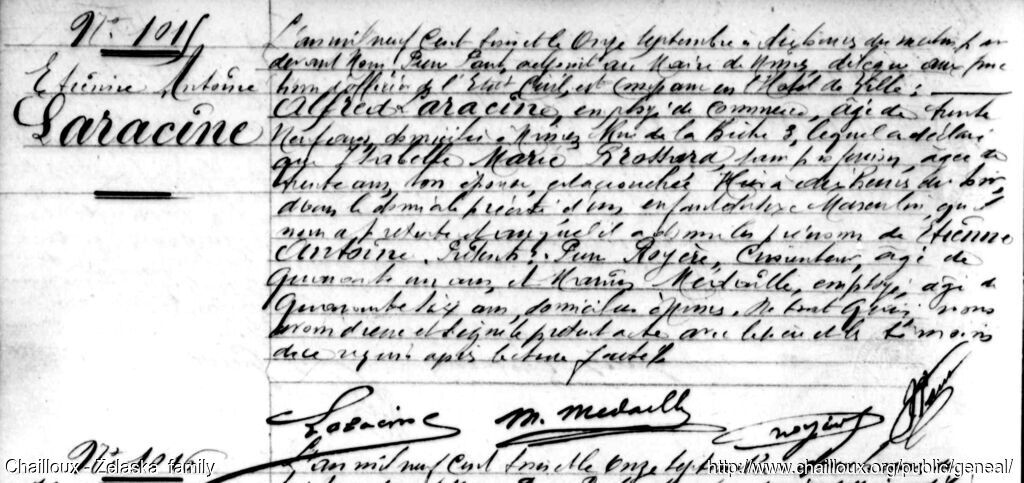 N° 1015
Etienne Antoine
Laracine
L'an mil neuf cent trois et le Onze Septembre à dix heures du matin par
devant Nous, Pierre adjoint au Maire de Nîmes délégué aux fonc
tions d'officier de l'Etat Civil, est comparu en l'Hôtel de Ville :
Alfred Laracine, employé de Commerce, âgé de trente
Neuf ans, domicilié à Nîmes, Rue de la Biche 3, lequel a déclaré
que Isabelle Marie Brossard, sans profession, âgée de
trente ans, son épouse, est accouchée Hier à dix heures du soir,
dans le domicile précité d'un enfant du sexe Masculin, qu'il
nous a présenté et auquel il a donné les prénoms de Etienne
Antoine. Présents : Pierre Royère, âgé de
quarante ans, et Médaille, employé, âgé de
quarante six ans, domiciliés à Nîmes. De tout quoi, nous
avons dressé et signé le présent acte avec le père et les témoins
de ce requis après lecture faite.
Laracine M. Medaille Royère
N° 1016
L'an mil neuf cent trois et le Onze Septembre
Chailloux - Zelaska family
http://www.chailloux.org/public/geneal/